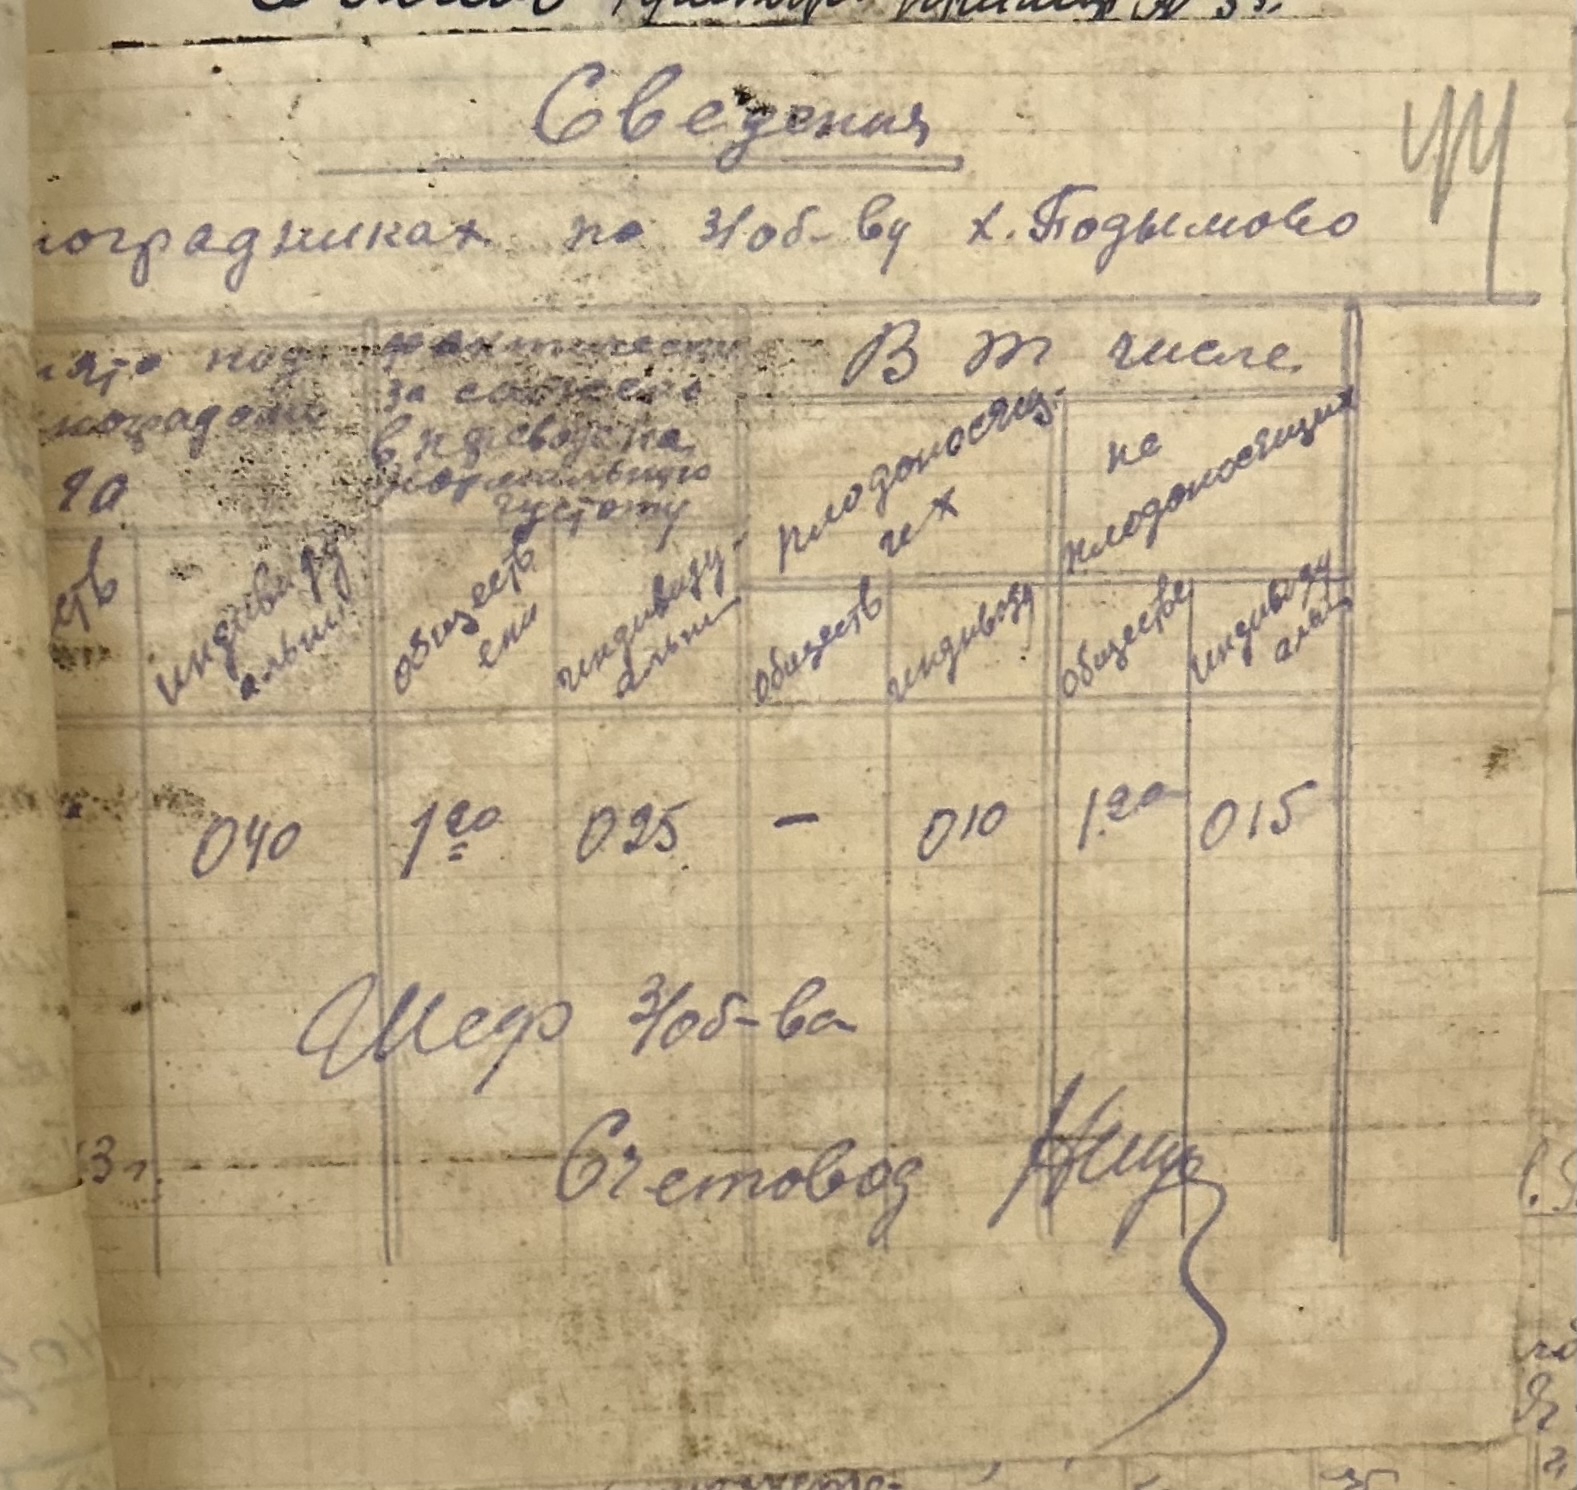 Сведения
ноградниках по З/об-ву х. Подымово
нято под
ноградом
га
фактически
за сажено
в переводе на
нормальную
густоту
В т числе
плодоносящ-
их
не
плодоносящих
ств
индивиду
альн
обществ
ен
индивиду-
альн
обществ
индивиду
обществе
индивиду
альн
040
1 га
025
-
010
1 га
015
Шеф З/об-ва
3 г.
Счетовод